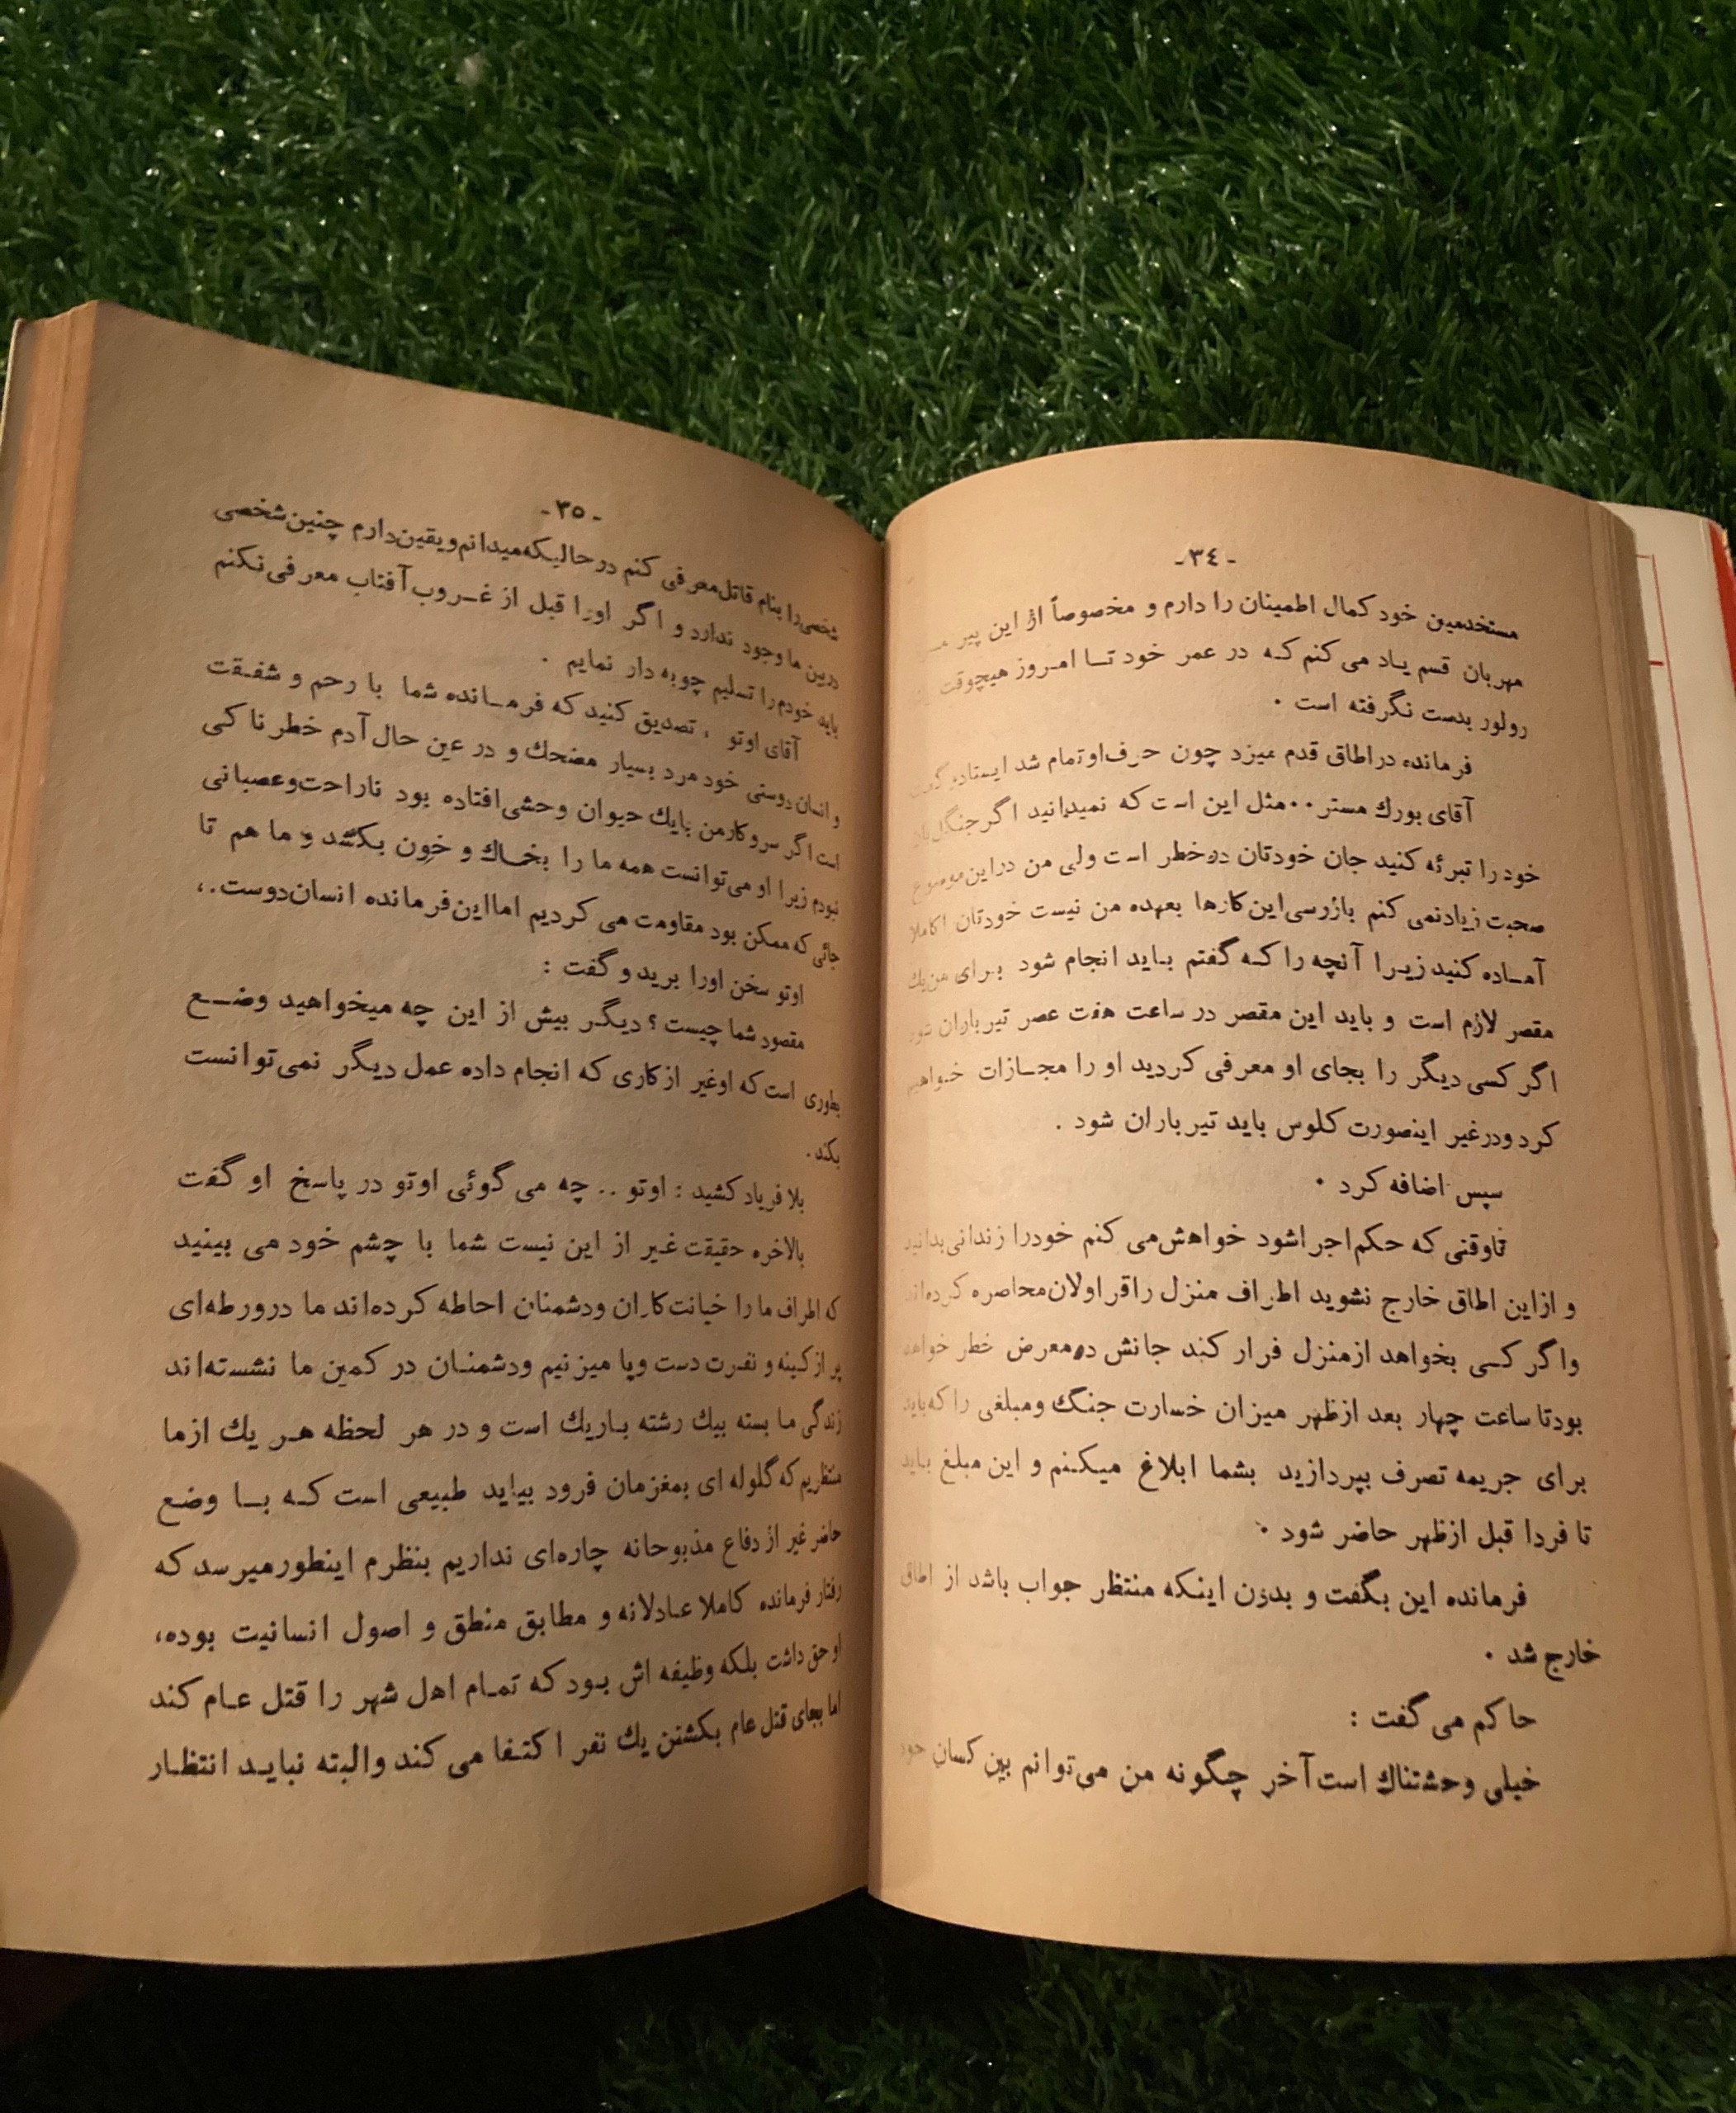 -٣٤-
مستخدمین خود کمال اطمینان را دارم و مخصوصاً از این پیر
مهربان قسم یاد می کنم که در عمر خود تا امروز هیچوقت
رولور بدست نگرفته است .
فرمانده در اطاق قدم میزد چون حرف او تمام شد ایستاده گفت
آقای بورك مستر .. مثل این است که نمیدانید اگر جنگل
خود را تبرئه کنید جان خودتان در خطر است ولی من در این موضوع
صحبت زیاد نمی کنم بازرسی این کارها بعهده من نیست خودتان کاملا
آماده کنید زیرا آنچه را که گفتم باید انجام شود برای من یك
مقصر لازم است و باید این مقصر در ساعت هفت عصر تیر باران شود
اگر کسی دیگر را بجای او معرفی کردید او را مجازات خواهیم
کرد و در غیر اینصورت کلوس باید تیر باران شود .
سپس اضافه کرد .
تاوقتی که حکم اجرا شود خواهش می کنم خود را زندانی بدانید
و از این اطاق خارج نشوید اطراف منزل را قراولان محاصره کرده اند
واگر کسی بخواهد از منزل فرار کند جانش در معرض خطر خواهد
بود تا ساعت چهار بعد از ظهر میزان خسارت جنگ و مبلغی را که باید
برای جریمه تصرف بپردازید بشما ابلاغ میکنم و این مبلغ باید
تا فردا قبل از ظهر حاضر شود .
فرمانده این بگفت و بدون اینکه منتظر جواب باشد از اطاق
خارج شد .
حاکم می گفت :
خیلی وحشتناك است آخر چگونه من می توانم بین کسان خود
-٣٥-
شخصی را بنام قاتل معرفی کنم در حالیکه میدانم و یقین دارم چنین شخصی
در بین ما وجود ندارد و اگر او را قبل از غروب آفتاب معرفی نکنم
باید خودم را تسلیم چوبه دار نمایم .
آقای اوتو ، تصدیق کنید که فرمانده شما با رحم و شفقت
و انسان دوستی خود مرد بسیار مضحك و در عین حال آدم خطرناکی
است اگر سر و کار من با یك حیوان وحشی افتاده بود ناراحت و عصبانی
نبودم زیرا او می توانست همه ما را بخاك و خون بکشد و ما هم تا
جائی که ممکن بود مقاومت می کردیم اما این فرمانده انسان دوست . ،
اوتو سخن اورا برید و گفت :
مقصود شما چیست ؟ دیگر بیش از این چه میخواهید وضع
بطوری است که او غیر از کاری که انجام داده عمل دیگر نمی توانست
بکند .
بلا فریاد کشید : اوتو .. چه می گوئی اوتو در پاسخ او گفت
بالاخره حقیقت غیر از این نیست شما با چشم خود می بینید
که اطراف ما را خیانت کاران و دشمنان احاطه کرده اند ما در ورطه ای
پر از کینه و نفرت دست و پا میزنیم و دشمنان در کمین ما نشسته اند
زندگی ما بسته بیك رشته باریك است و در هر لحظه هر یك از ما
منتظریم که گلوله ای بمغزمان فرود بیاید طبیعی است که با وضع
حاضر غیر از دفاع مذبوحانه چاره ای نداریم بنظرم اینطور میرسد که
رفتار فرمانده کاملا عادلانه و مطابق منطق و اصول انسانیت بوده ،
او حق داشت بلکه وظیفه اش بود که تمام اهل شهر را قتل عام کند
اما بجای قتل عام بکشتن یك نفر اکتفا می کند و البته نباید انتظار